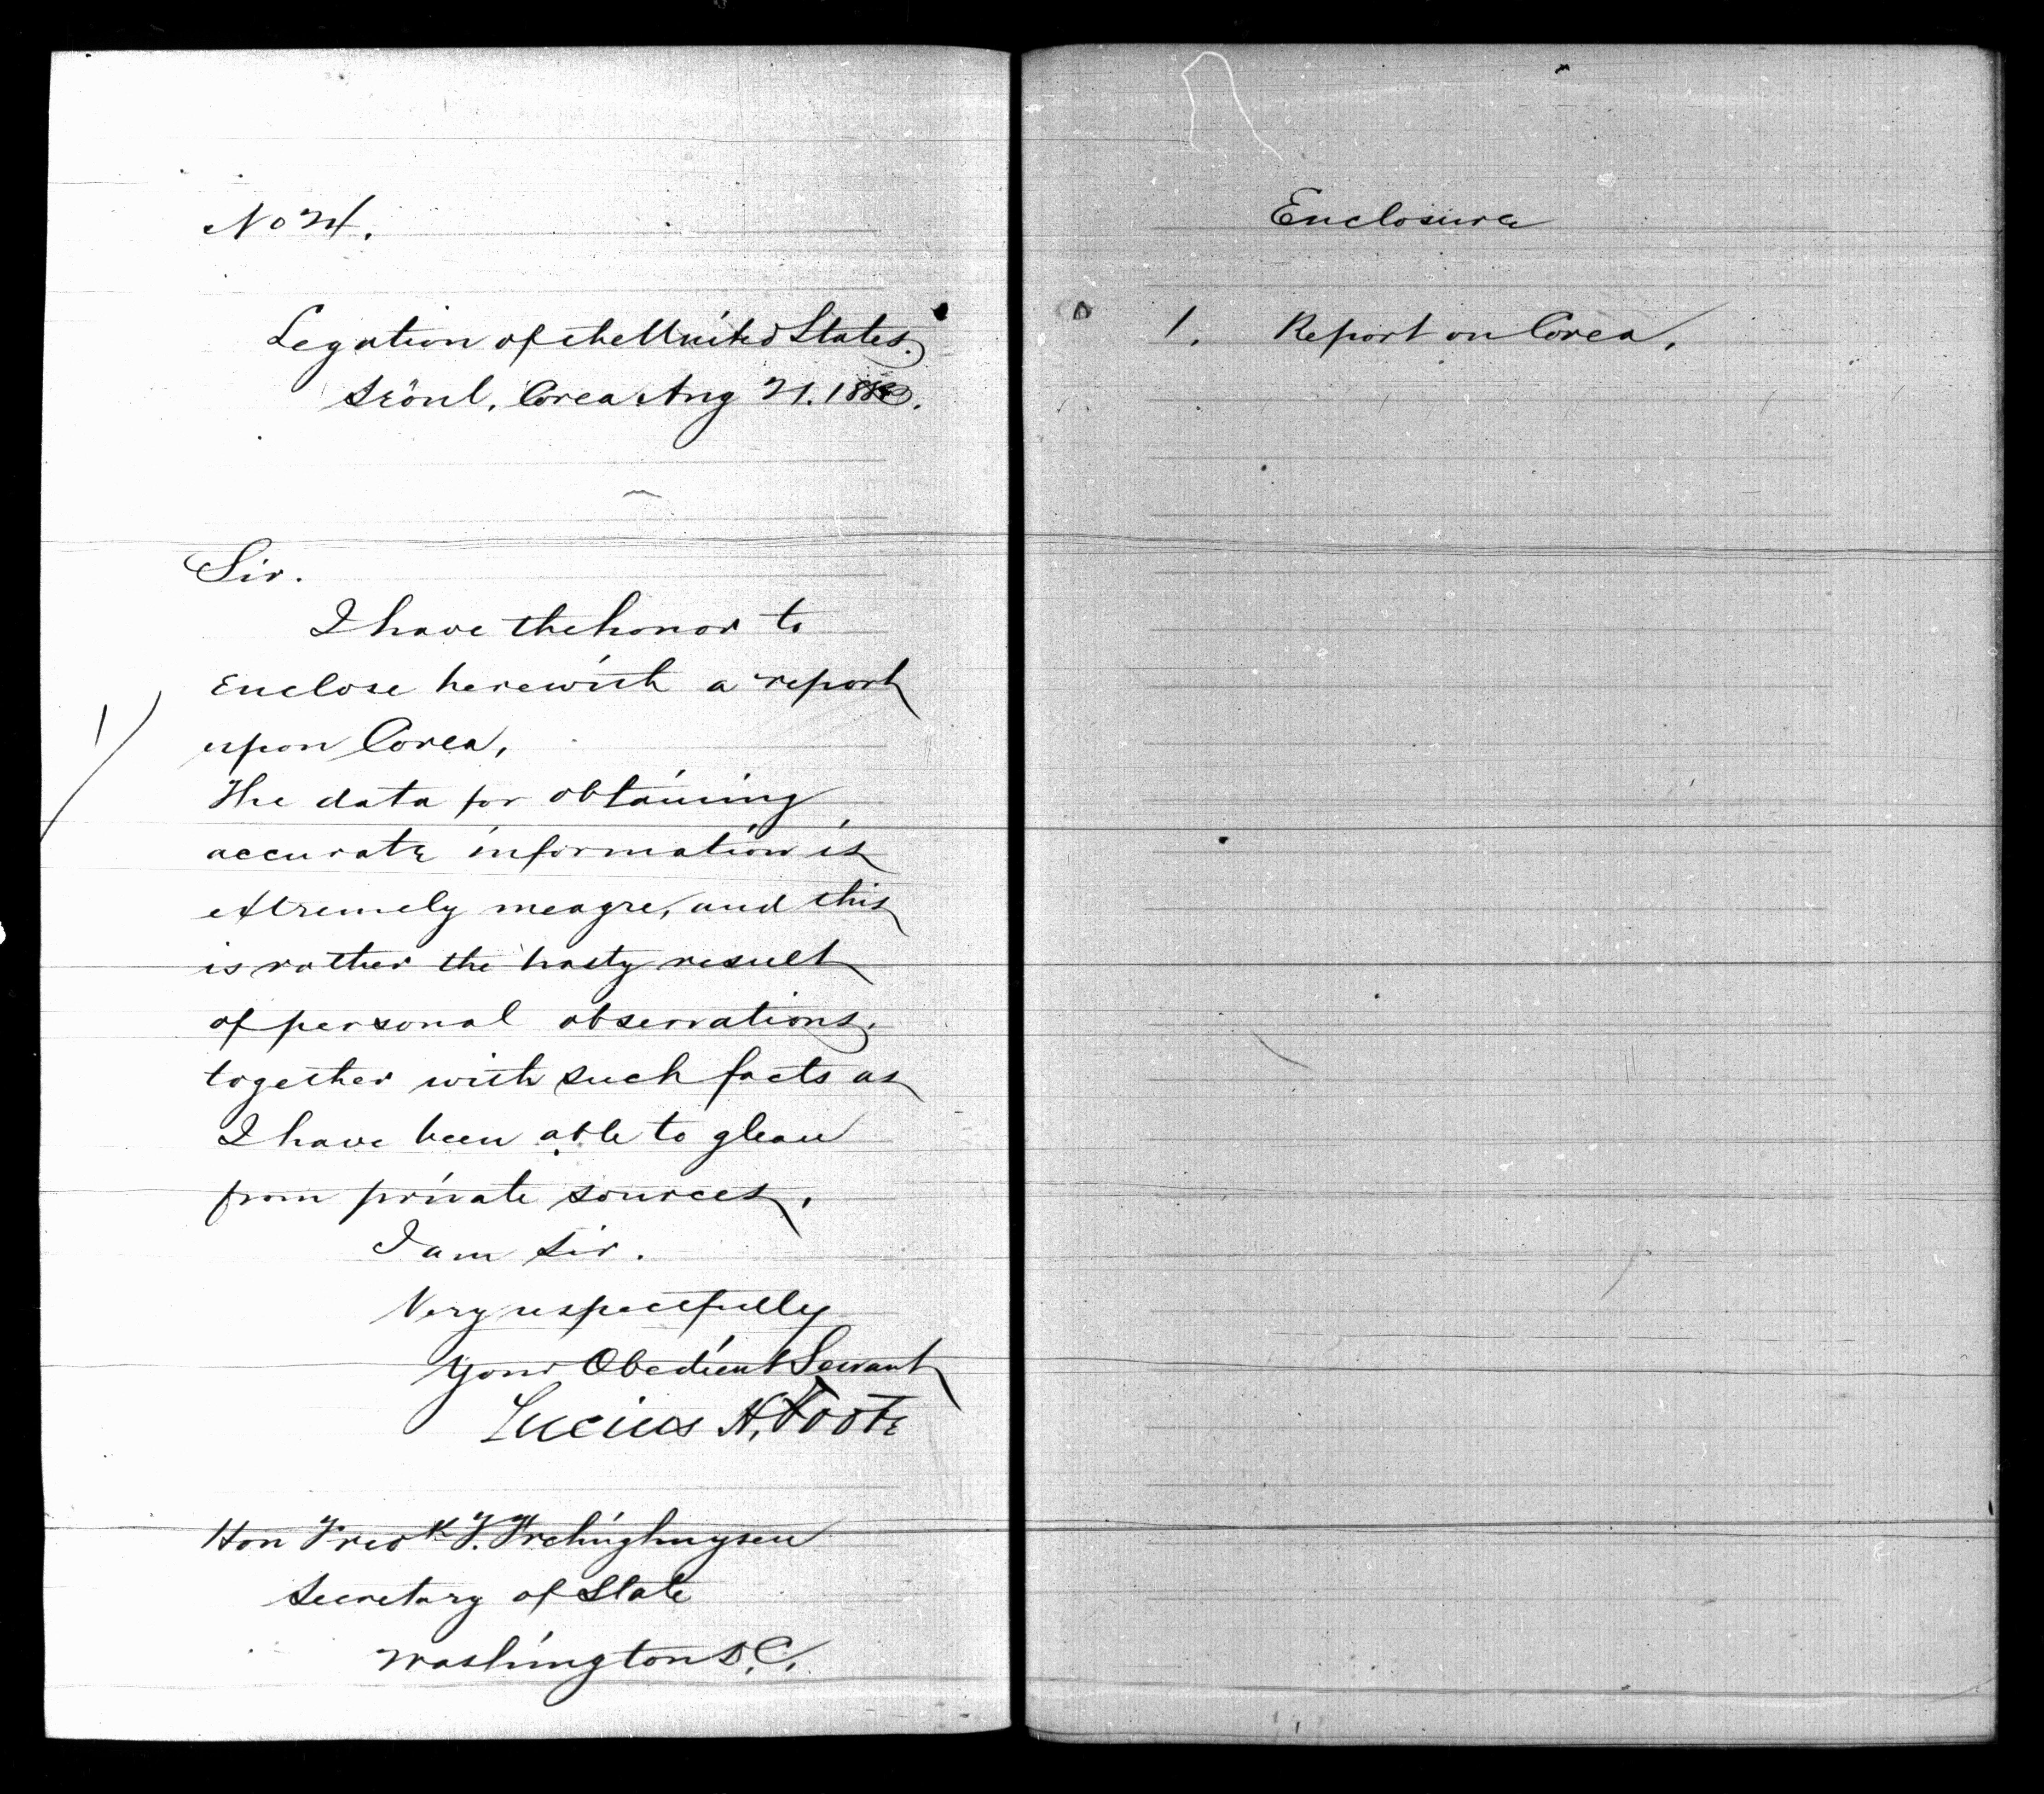 No 24.
Legation of the United States.
Seoul, Corea Aug 21. 1883.
Sir.
I have the honor to
enclose herewith a report
upon Corea,
The data for obtaining
accurate information is
extremely meagre, and this
is rather the hasty result
of personal observations.
together with such facts as
I have been able to glean
from private sources.
I am Sir.
Very respectfully
Your Obedient Servant
Lucius H. Foote
Hon Fredk T. Frelinghuysen
Secretary of State
Washington D.C.
Enclosure
1. Report on Corea.